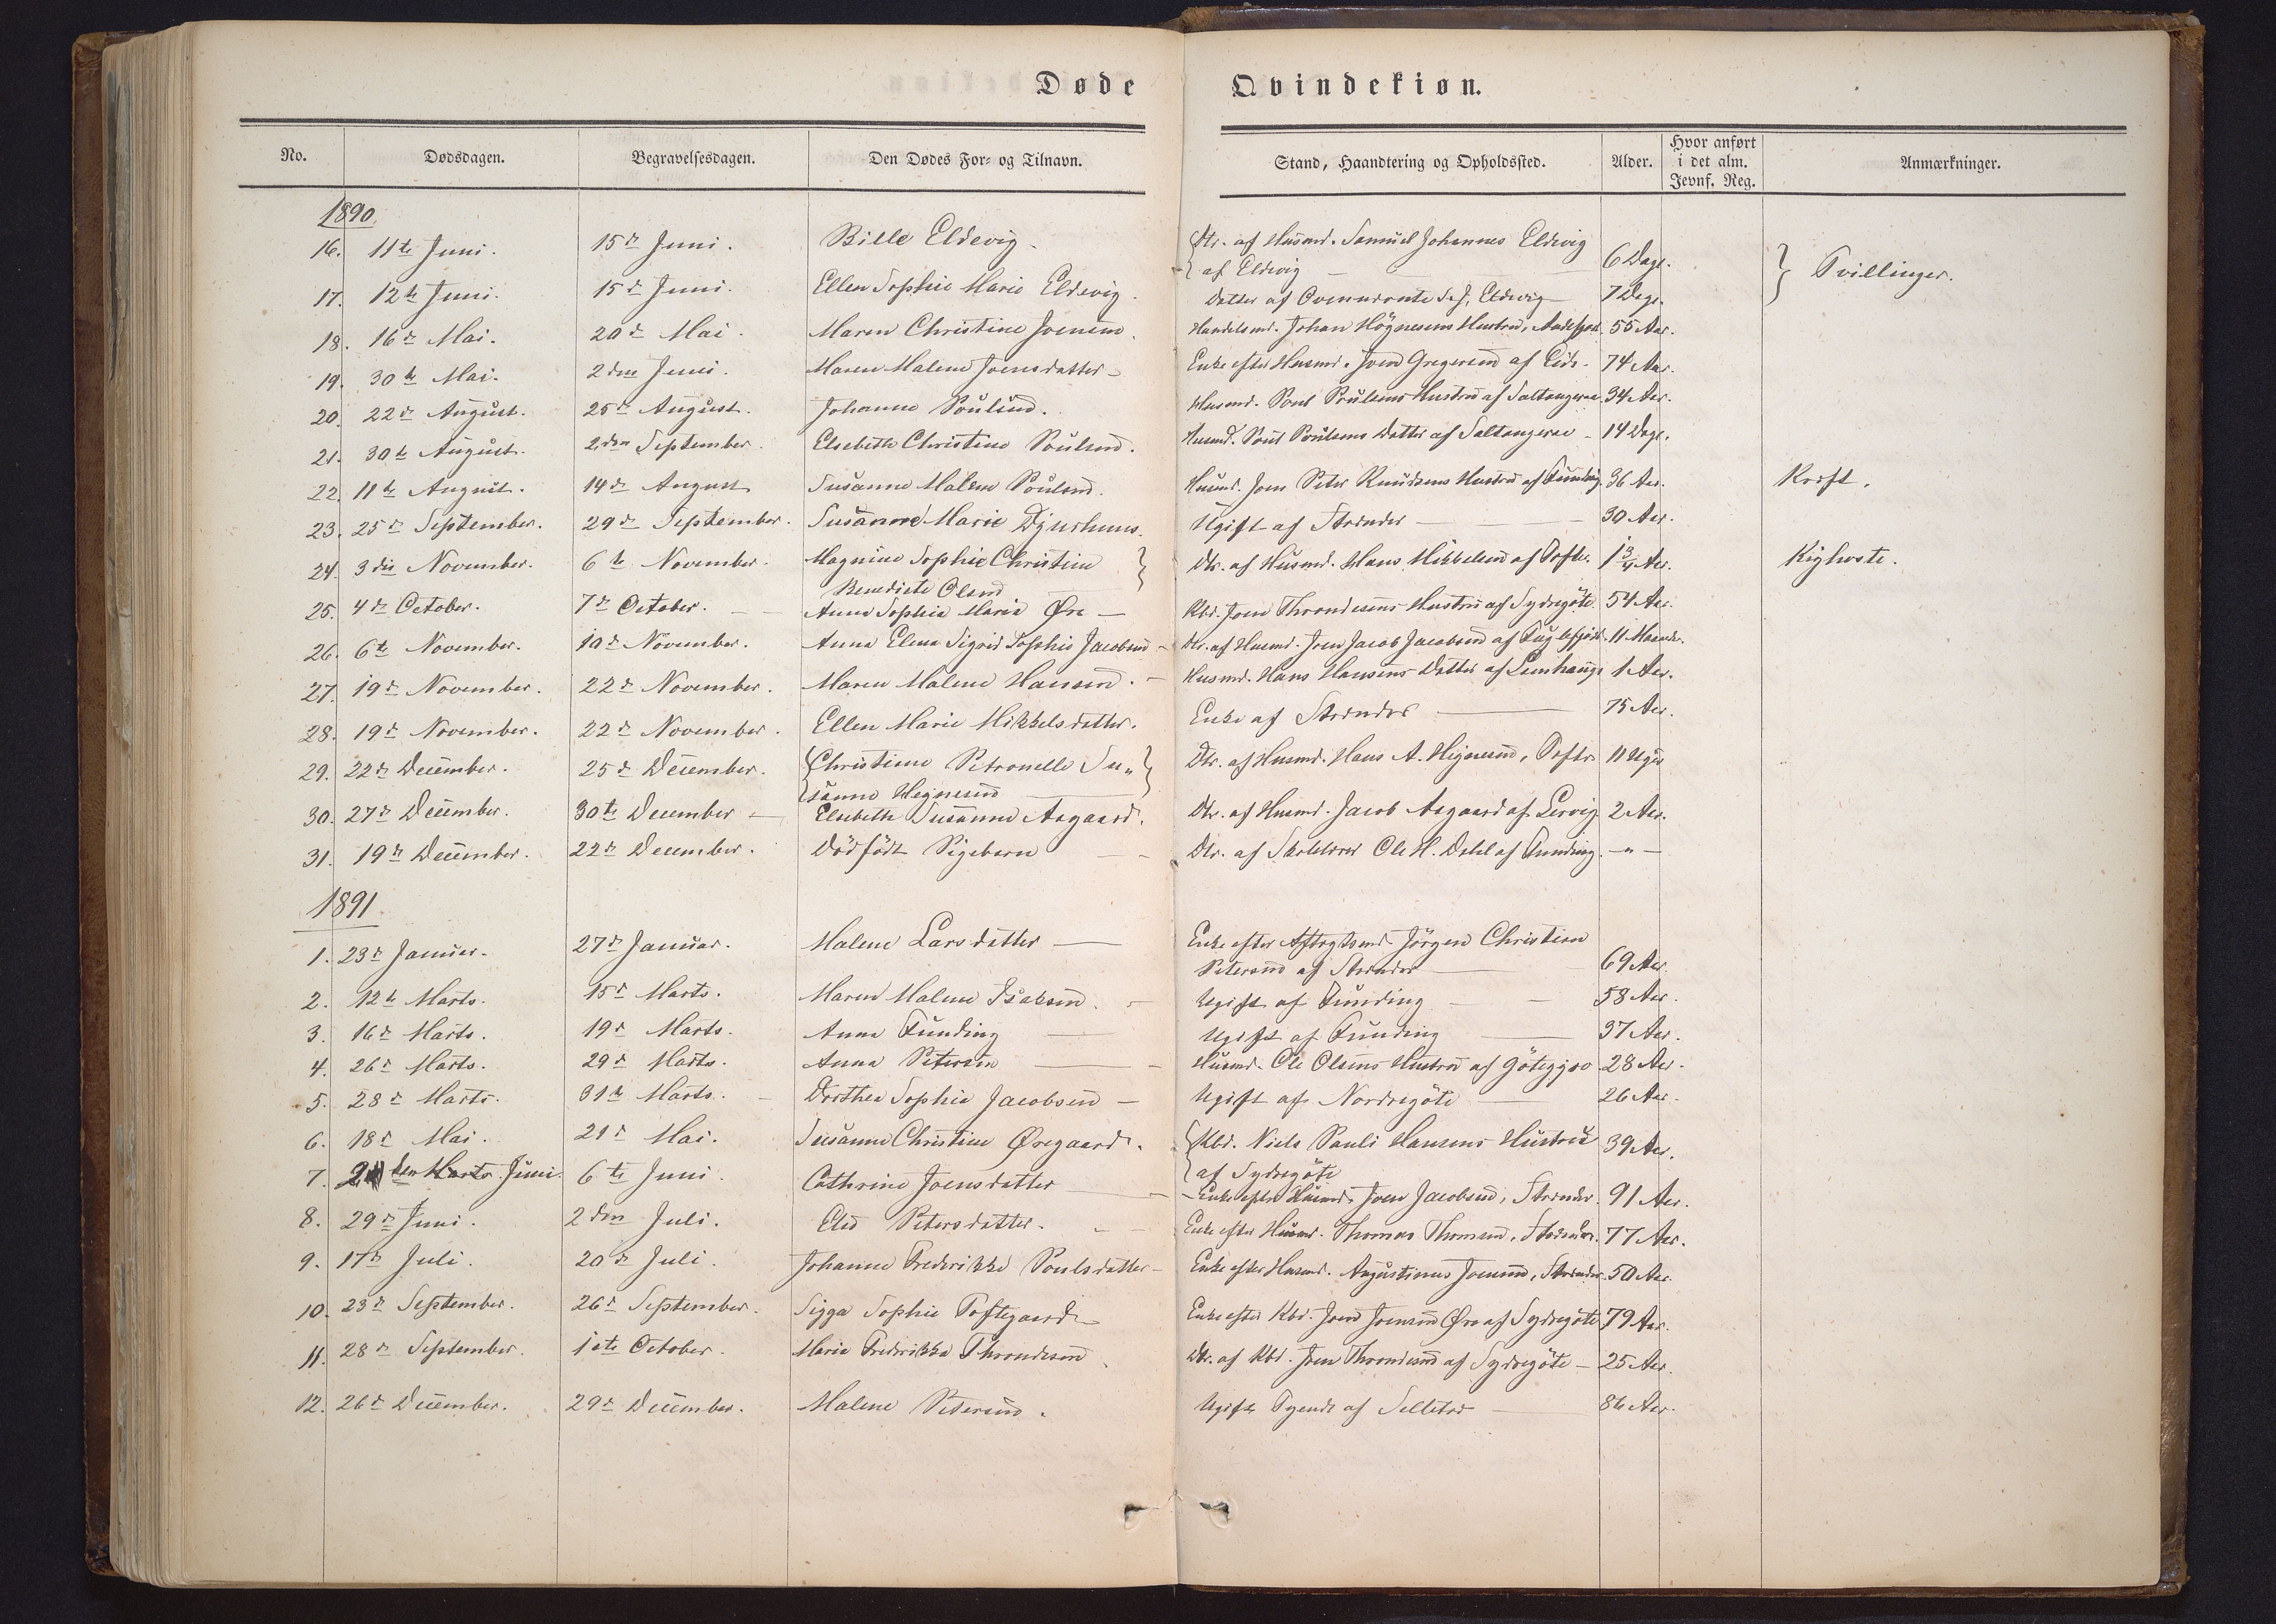 Døde Qvindekiøn.
No. Dødsdagen. Begravelsesdagen. Den Dødes For- og Tilnavn. Stand, Haandtering og Opholdssted. Alder. Hvor anført i det alm. Jevnf. Reg. Anmærkninger.
1890.
16. 11te Juni. 15de Juni. Bille Eldevig. Dtr. af Husmd. Samuel Johannes Eldevig
af Eldevig — 6 Dage. } Tvillinger.
17. 12te Juni. 15de Juni. Ellen Sophie Marie Eldevig. Datter af Ovennævnte S. J. Eldevig — 7 Dage.
18. 16de Mai. 20de Mai. Maren Christine Joensen. Handelsmd. Johan Högnesens Hustru, 55 Aar.
19. 30te Mai. 2den Juni. Maren Malene Joensdatter — Enke efter Husmd. Joen Gregersen af Eide. 74 Aar.
20. 22de August. 25de August. Johanne Poulsen. Husmd. Poul Poulsens Hustru af Saltangeraa. 34 Aar.
21. 30te August. 2den September. Elsebeth Christine Poulsen. Husmd. Poul Poulsens Datter af Saltangeraa — 14 Dage.
22. 11te August. 14de August Susanne Malene Poulsen. Husmd. Joen Peter Knudsens Hustru af Funding. 36 Aar. Kræft.
23. 25de September. 29de September. Susanne Marie Djurhuus. Ugift af Strænder — 30 Aar.
24. 3die November. 6te November. Magnine Sophie Christine }
Benedicte Olsen Dtr. af Husmd. Hans Mikkelsen af Tofte. 1 3/4 Aar. Kighoste.
25. 4de October. 7de October. — Anna Sophia Maria Øre — Kbd. Joen Throndesens Hustru af Sydregöte. 54 Aar.
26. 6te November. 10de November. Anna Elena Sigrid Sophie Jacobsen — Dtr. af Husmd. Joen Jacob Jacobsen af Fuglefjord. 11 Maaneder.
27. 19de November. 22de November. Maren Malene Hansen. — Husmd. Hans Hansens Datter af Lamhauge 1 Aar.
28. 19de November. 22de November. Ellen Marie Mikkelsdatter. Enke af Strænder — 75 Aar.
29. 22de December. 25de December. {Christiane Petronelle Su„}
{sanne Høgnesen — } Dtr. af Husmd. Hans A. Høgnesen, Tofte 11 Uger
30. 27de December. 30te December — Elsebeth Susanne Aagaard. Dtr. af Husmd. Jacob Aagaard af Lervig. 2 Aar.
31. 19de December. 22de December. Dödfödt Pigebarn — Dtr. af Skolelærer Ole H. Dahl af Funding. — „ —
1891.
1. 23de Januar. 27de Januar. Malene Larsdatter — Enke efter Aftægtsmd. Jörgen Christian
Petersen af Strænder — 69 Aar.
2. 12te Marts. 15de Marts. Maren Malene Isaksen. — Ugift af Funding — 58 Aar.
3. 16de Marts. 19de Marts. Anna Funding — Ugift af Funding — 37 Aar.
4. 26de Marts. 29de Marts. Anna Petersen — Husmd. Ole Olsens Hustru af Göteggjo 28 Aar.
5. 28de Marts. 31te Marts. — Dorthea Sophia Jacobsen — Ugift af Nordregöte — 26 Aar.
6. 18de Mai. 21de Mai. Susanne Christine Øregaard. {Kbd. Niels Pauli Hansens Hustru
{af Sydregöte 39 Aar.
7. 2den Marts Juni. 6te Juni. Cathrine Joensdatter — Enke efter Husmd. Joen Jacobsen, Strænder. 91 Aar.
8. 29de Juni. 2den Juli. Else Petersdatter. — Enke efter Husmd. Thomas Thomsen, Strænder. 77 Aar.
9. 17de Juli. 20de Juli. Johanne Frederikke Poulsdatter — Enke efter Husmd. Augustinus Joensen, Strænder. 50 Aar.
10. 23de September. 26de September. Sigga Sophie Toftegaard — Enke efter Kbd. Joen Joensen Øre af Sydregöte 79 Aar.
11. 28de September. 1ste October. Maria Fredrikka Throndesen. Dtr. af Kbd. Joen Throndesen af Sydregöte — 25 Aar.
12. 26de December. 29de December. Malene Petersen. Ugift Tyende af Selletræ — 86 Aar.